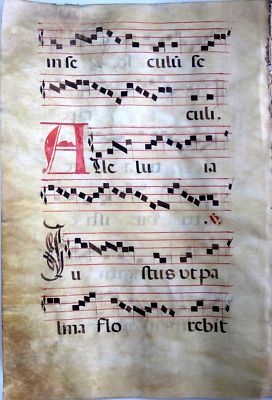 in se culũ se
culi.
Alle lu ia
℣.
Ju stus ut pa
lma flo rebit